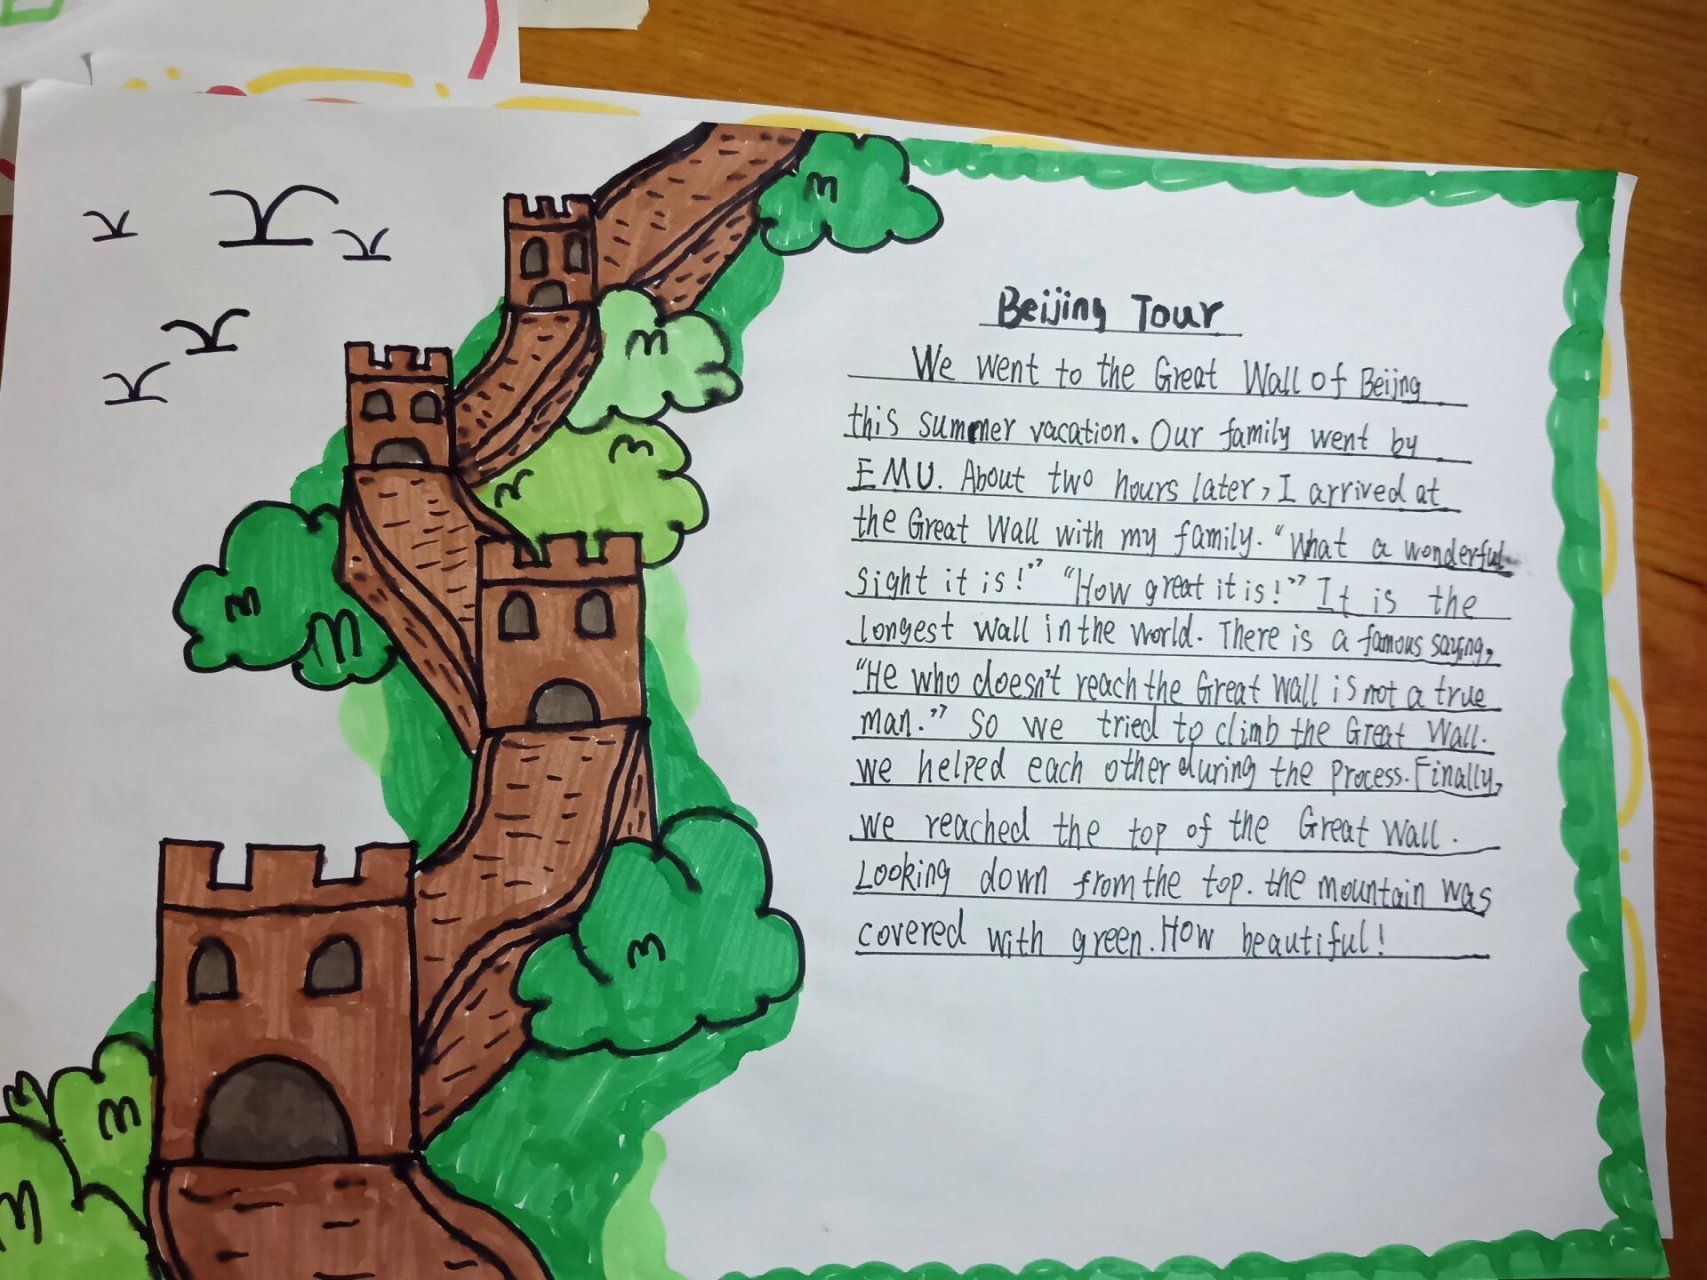 Beijing Tour
We went to the Great Wall of Beijng
this summer vacation. Our family went by
EMU. About two hours later, I arrived at
the Great Wall with my family. "What a wonderful
sight it is!" "How great it is!" It is the
longest wall in the world. There is a famous saying,
"He who doesn't reach the Great Wall is not a true
man." So we tried to climb the Great Wall.
we helped each other during the process. Finally,
we reached the top of the Great Wall.
Looking down from the top. the mountain was
covered with green. How beautiful!